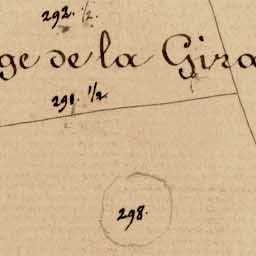 292. 1/2.
ge de la Gira
291. 1/2
298.